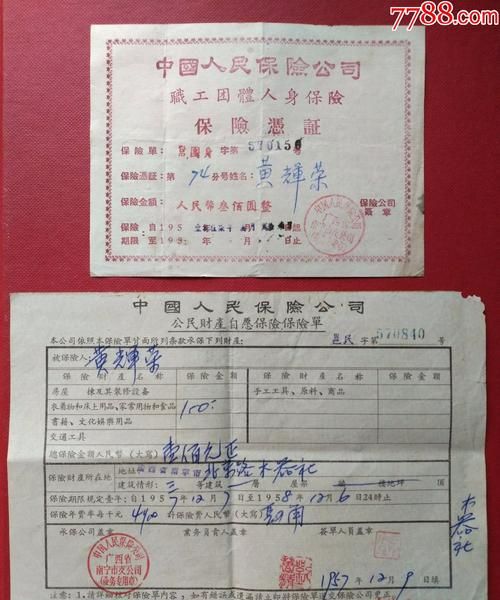 7788.com
中國人民保險公司
職工団體人身保險
保險憑証
保險單： 團身 字第 570150 號
保險憑証：第 74 分号姓名： 黃輝荣
保險金額： 人民幣叁佰圓整 保險公司
蓋章
保險 自195
期限 至195 年 止
中國人民保險公司
公民財產自愿保險保險單
本公司依照本保險單背面所列条款承保下列財產： 邕民 字第 570840 号
被保險人 黃輝荣
保險財產名称 保險金額 保險財產名称 保險金額
房屋 棟及其裝修設备 手工工具、原料、商品
衣着物和床上用品、家常用物和食品 100.-
書籍、文化娛樂用品
交通工具
總保險金額人民幣（大寫） 壹佰元正
保險財產所在地 地址 木器社
建筑情形： 三 等建筑 層 屋架
保險期限規定壹年：自1957年12月7日至1958年12月6日24時止
保險年費率每千元 計保險費人民幣（大寫）
承保公司蓋章 業务員責人蓋章 簽單人員蓋章
木器社
中国人民保险公司
广西省
南宁市支公司
(業务专用章)
1957年12月9日填
注意：1.請詳細核对保險單內容，如有錯誤或遺漏